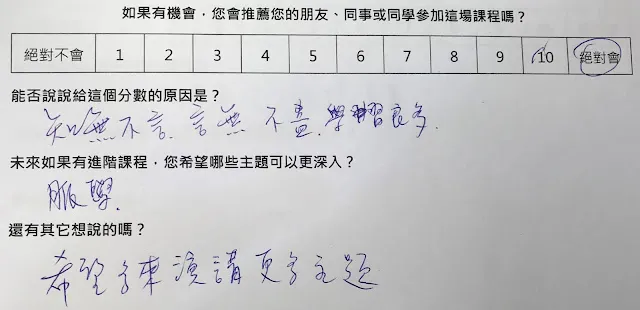 如果有機會，您會推薦您的朋友、同事或同學參加這場課程嗎？
絕對不會 1 2 3 4 5 6 7 8 9 10 絕對會
能否說說給這個分數的原因是？
知無不言、言無不盡、學習良多.
未來如果有進階課程，您希望哪些主題可以更深入？
脈學.
還有其它想說的嗎？
希望多來演講更多主題